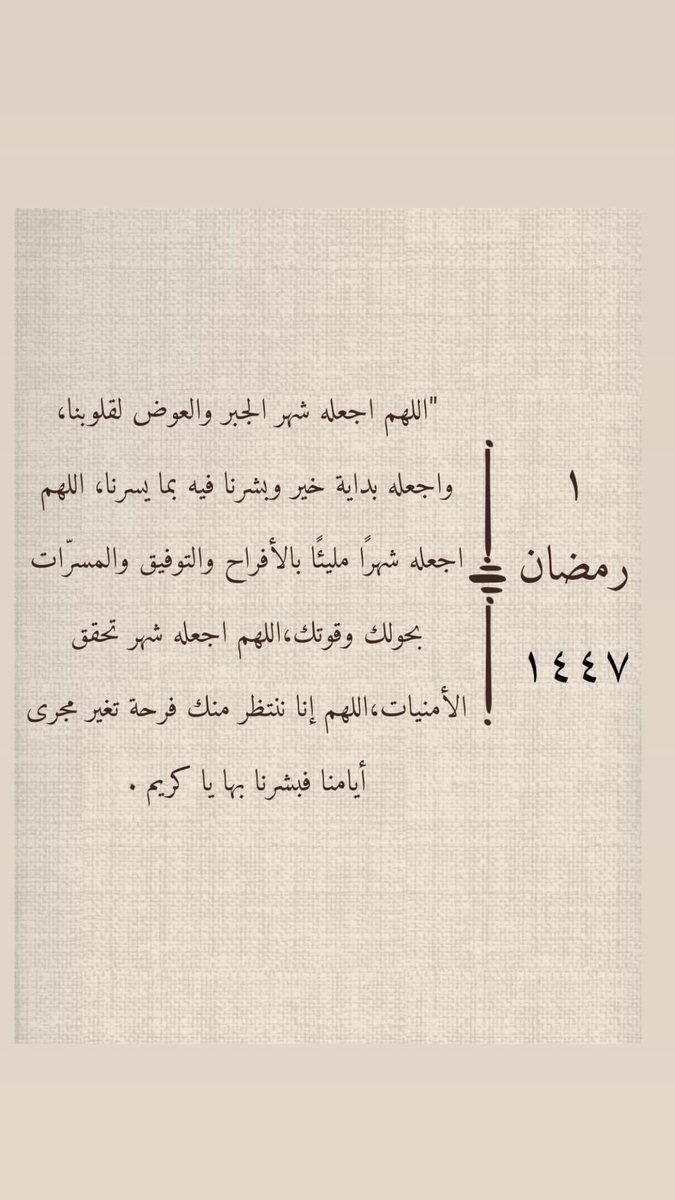 ١
رمضان
١٤٤٧
"اللهم اجعله شهر الجبر والعوض لقلوبنا،
واجعله بداية خير وبشرنا فيه بما يسرنا، اللهم
اجعله شهرًا مليئًا بالأفراح والتوفيق والمسرّات
بحولك وقوتك،اللهم اجعله شهر تحقق
الأمنيات،اللهم إنا ننتظر منك فرحة تغير مجرى
أيامنا فبشرنا بها يا كريم .